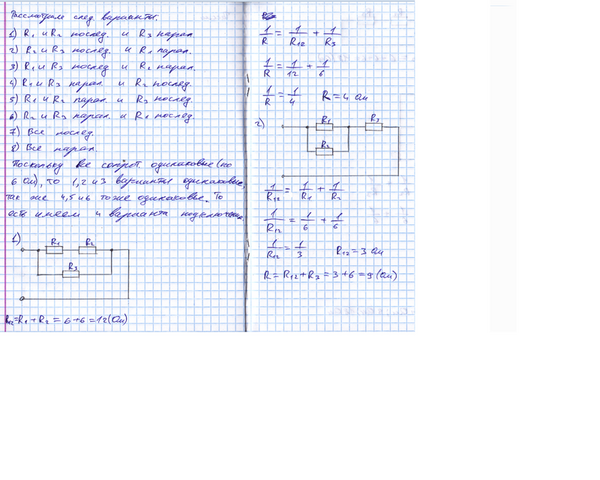 Рассмотрим след. варианты.
1) R₁ и R₂ послед. и R₃ парал
2) R₂ и R₃ послед. и R₁ парал.
3) R₁ и R₃ послед и R₂ парал.
4) R₁ и R₃ парал. и R₂ послед.
5) R₁ и R₂ парал. и R₃ послед.
6) R₂ и R₃ парал. и R₁ послед.
7) Все послед.
8) Все парал.
Поскольку все сопрот. одинаковые (по
6 Ом), то 1, 2 и 3 варианты одинаковые,
так же 4, 5 и 6 тоже одинаковые. То
есть имеем 4 варианта подключения.
1)
R₁ R₂
R₃
R₁₂ = R₁ + R₂ = 6+6 = 12 (Ом)
1/R = 1/R₁₂ + 1/R₃
1/R = 1/12 + 1/6
1/R = 1/4 R = 4 Ом
2)
R₁ R₃
R₂
1/R₁₂ = 1/R₁ + 1/R₂
1/R₁₂ = 1/6 + 1/6
1/R₁₂ = 1/3 R₁₂ = 3 Ом
R = R₁₂ + R₃ = 3 + 6 = 9 (Ом)